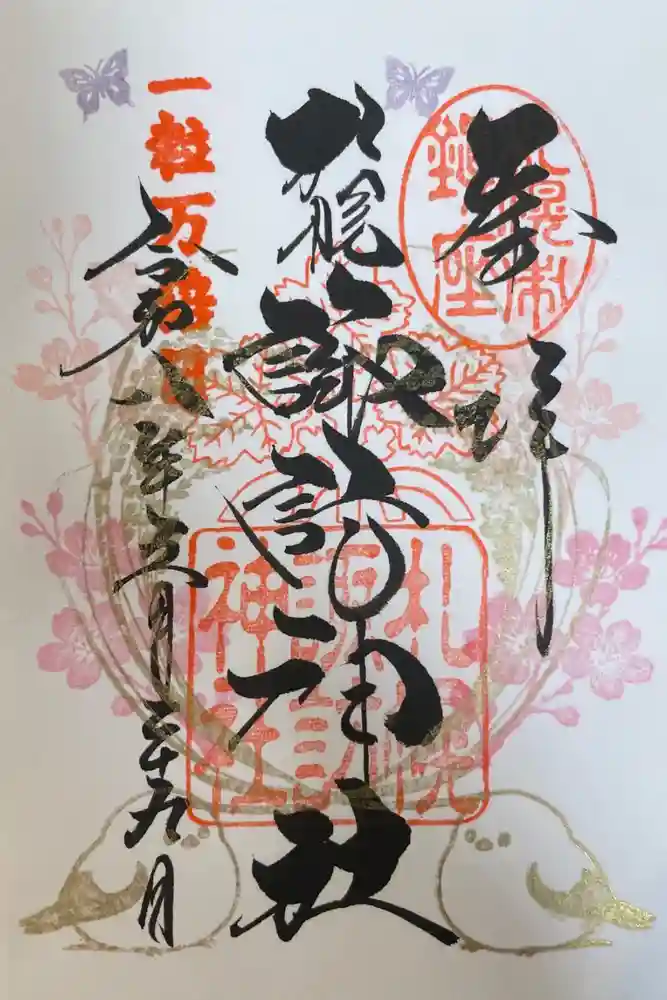 奉拝
鎮座
札幌諏訪神社
札幌
諏訪
神社
一粒万倍日
令和八年三月二十九日